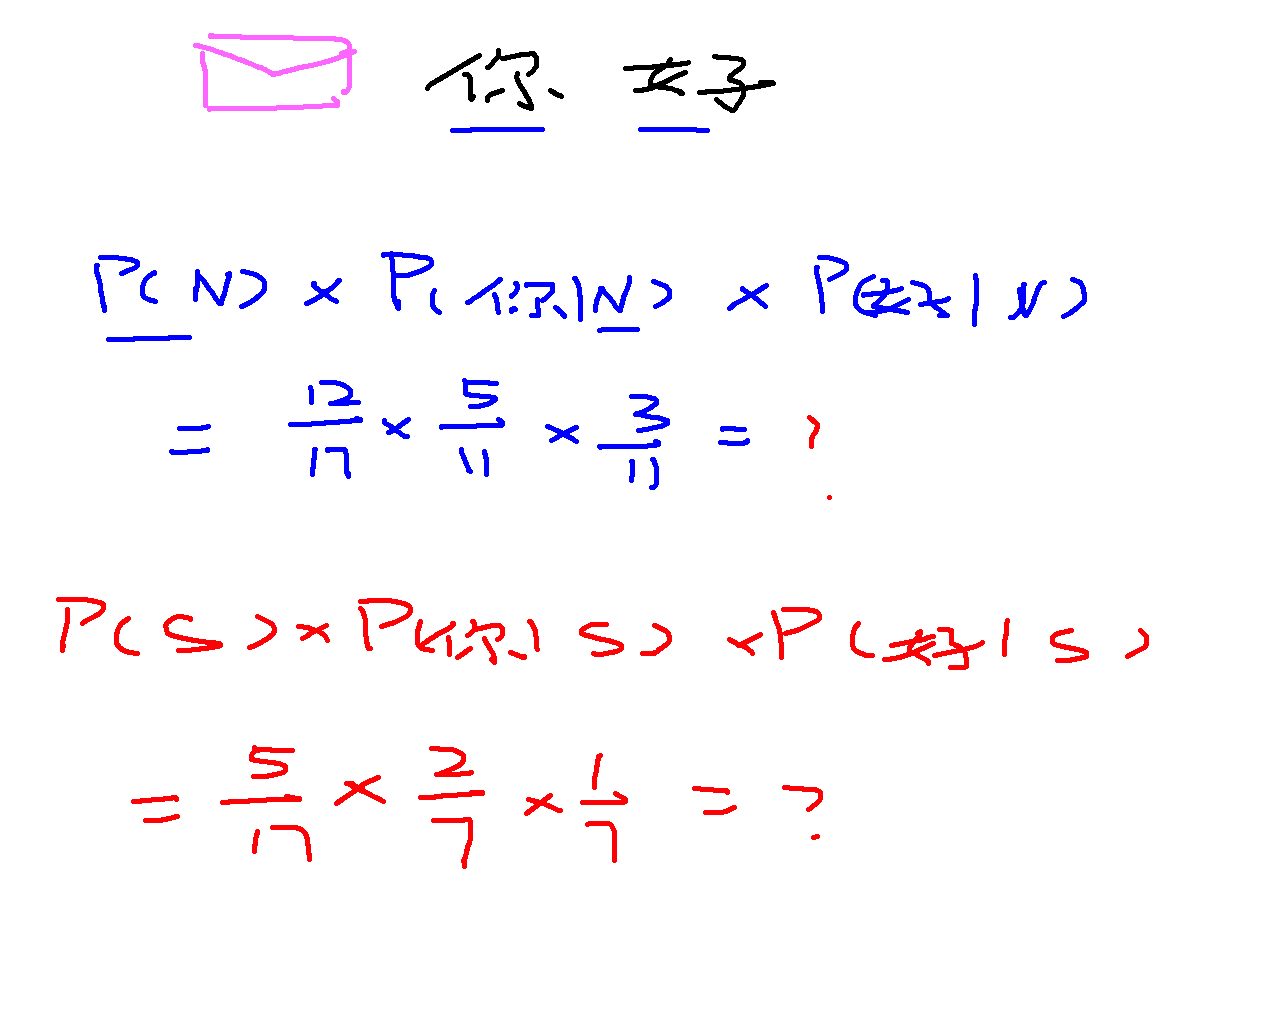 你 孝子
P(N) × P(你|N) × P(孝子|N)
= 12/17 × 5/11 × 3/11 = ?
P(S) × P(你|S) × P(孝子|S)
= 5/17 × 2/7 × 1/7 = ?